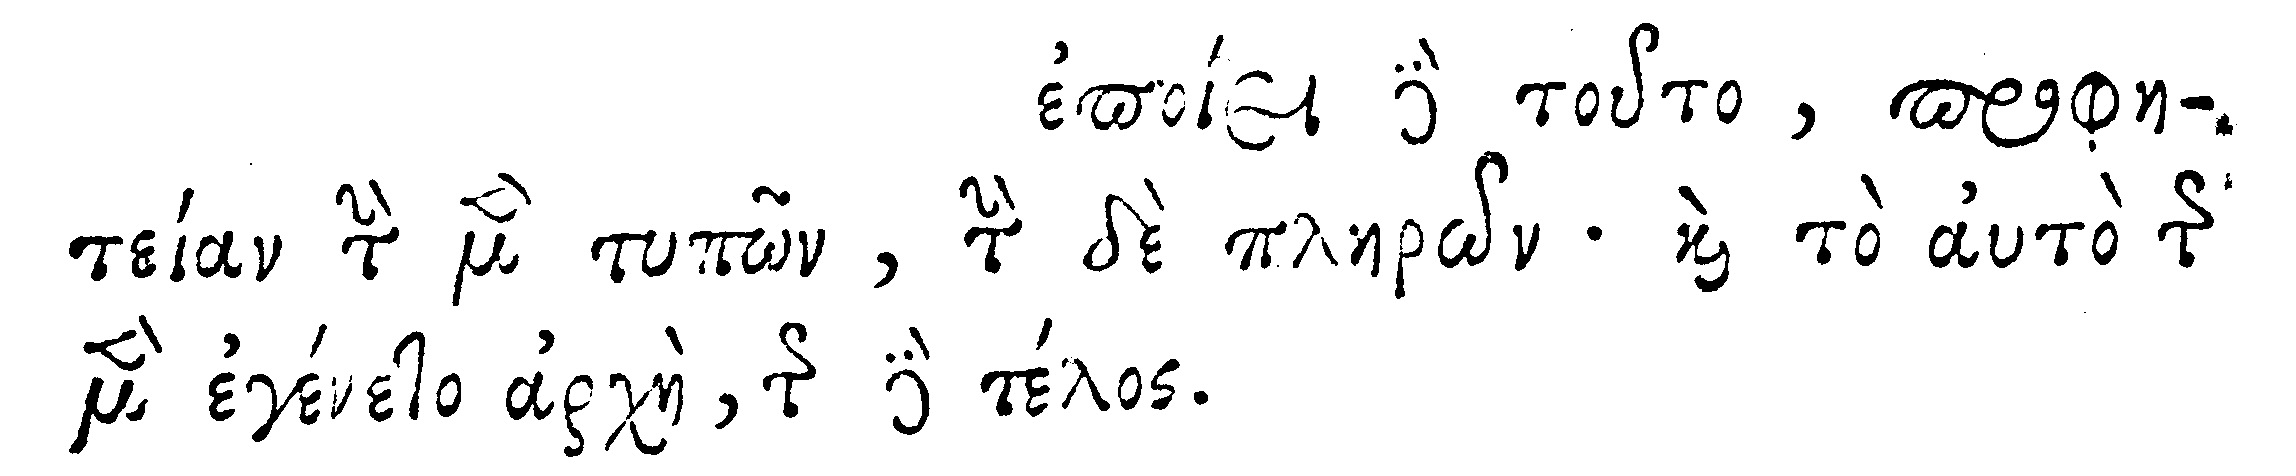 ἐποίει δὲ τοῦτο, προφη-
τείαν τὴν μὲν τυπῶν, τὴν δὲ πληρῶν· καὶ τὸ ἀυτὸ τῆς
μὲν ἐγένετο ἀρχὴ, τῆς δὲ τέλος.